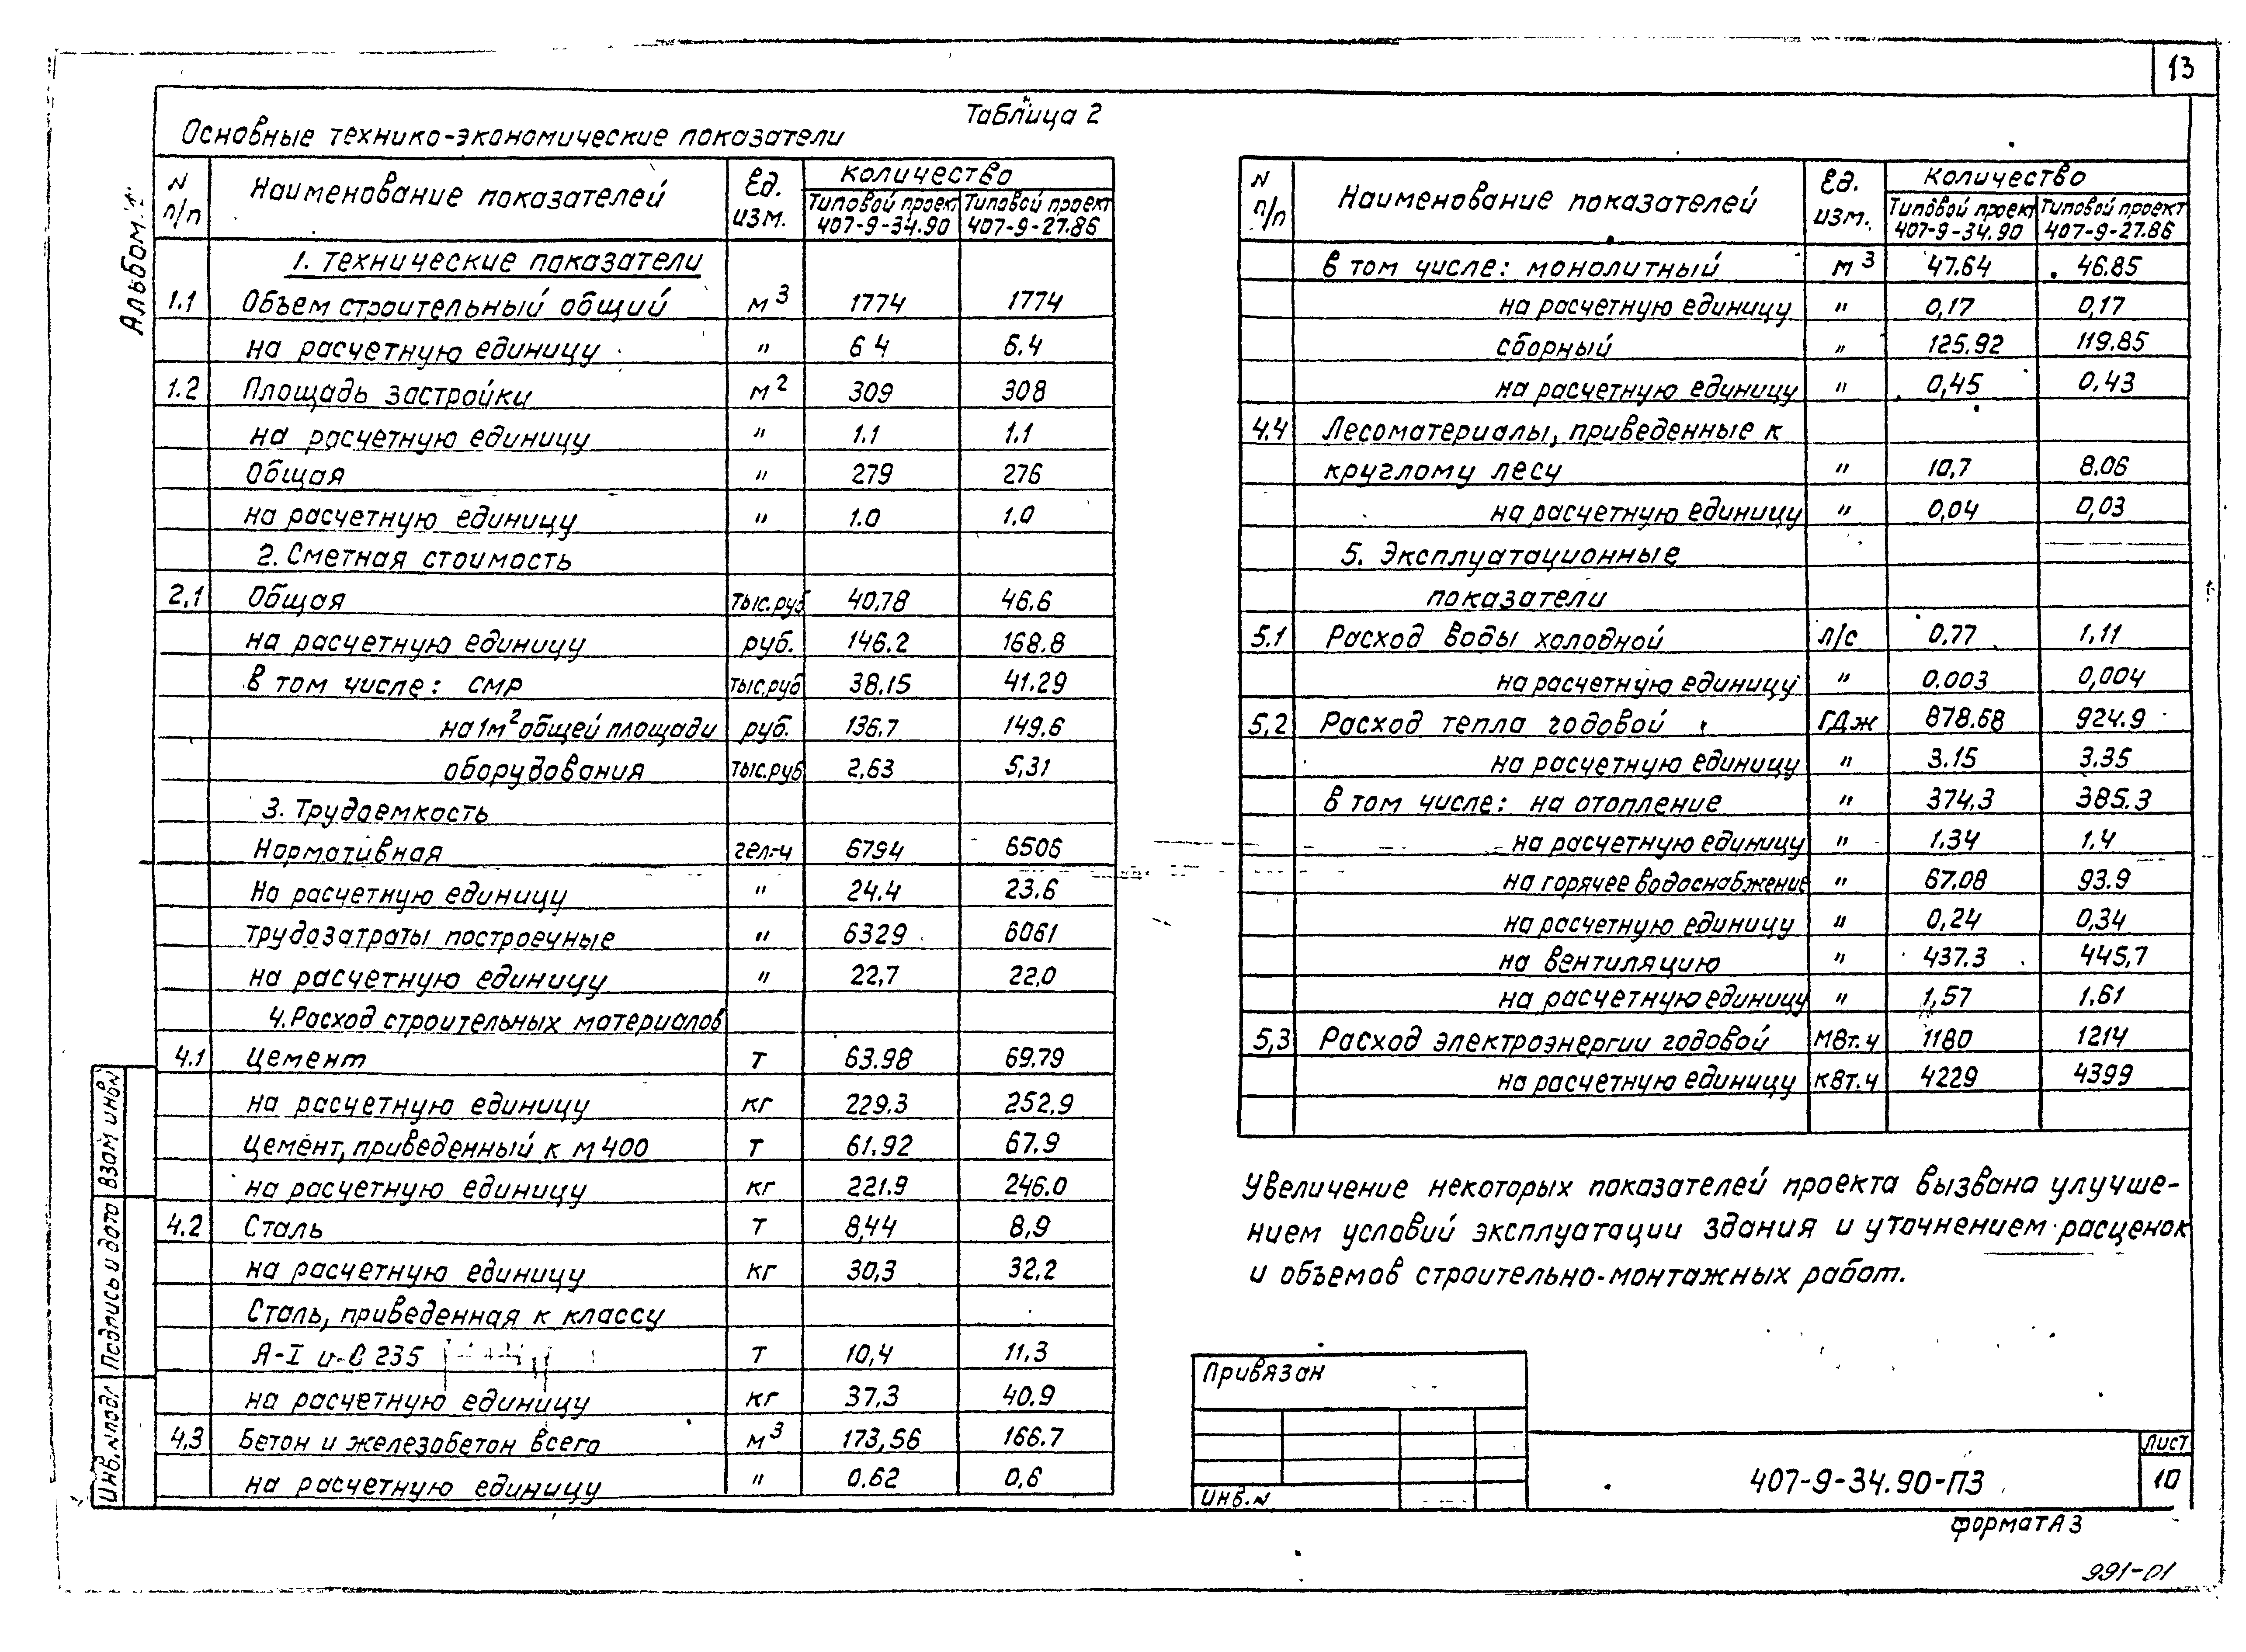 13
Альбом 1
Таблица 2
Основные технико-экономические показатели
N п/п | Наименование показателей | Ед. изм. | Количество
Типовой проект 407-9-34.90 | Типовой проект 407-9-27.86
1. Технические показатели
1.1 Объем строительный общий м3 1774 1774
на расчетную единицу " 6 4 6.4
1.2 Площадь застройки м2 309 308
на расчетную единицу " 1.1 1.1
Общая " 279 276
на расчетную единицу " 1.0 1.0
2. Сметная стоимость
2.1 Общая тыс.руб 40,78 46.6
на расчетную единицу руб. 146.2 168.8
в том числе: СМР тыс.руб 38.15 41.29
на 1м2 общей площади руб. 136.7 149.6
оборудования тыс.руб 2,63 5,31
3. Трудоемкость
Нормативная чел.-ч 6794 6506
На расчетную единицу " 24.4 23.6
трудозатраты построечные " 6329 6061
на расчетную единицу " 22,7 22,0
4. Расход строительных материалов
4.1 Цемент т 63.98 69.79
на расчетную единицу кг 229.3 252.9
Цемент, приведенный к М400 т 61.92 67.9
на расчетную единицу кг 221.9 246.0
4.2 Сталь т 8,44 8,9
на расчетную единицу кг 30,3 32.2
Сталь, приведенная к классу
А-I и С 235 т 10,4 11.3
на расчетную единицу кг 37.3 40.9
4.3 Бетон и железобетон всего м3 173,56 166.7
на расчетную единицу " 0.62 0,6
N п/п | Наименование показателей | Ед. изм. | Количество
Типовой проект 407-9-34.90 | Типовой проект 407-9-27.86
в том числе: монолитный м3 47.64 46.85
на расчетную единицу " 0,17 0,17
сборный " 125.92 119.85
на расчетную единицу " 0,45 0.43
4.4 Лесоматериалы, приведенные к
круглому лесу " 10,7 8.06
на расчетную единицу " 0,04 0,03
5. Эксплуатационные
показатели
5.1 Расход воды холодной л/с 0.77 1,11
на расчетную единицу " 0.003 0,004
5.2 Расход тепла годовой ГДж 878.68 924.9
на расчетную единицу " 3.15 3.35
в том числе: на отопление " 374.3 385.3
на расчетную единицу " 1.34 1.4
на горячее водоснабжение " 67.08 93.9
на расчетную единицу " 0,24 0,34
на вентиляцию " 437.3 445,7
на расчетную единицу " 1,57 1.61
5,3 Расход электроэнергии годовой МВт.ч 1180 1214
на расчетную единицу кВт.ч 4229 4399
Увеличение некоторых показателей проекта вызвано улучше-
нием условий эксплуатации здания и уточнением расценок
и объемов строительно-монтажных работ.
Привязан
Инв.N
407-9-34.90-ПЗ
Лист
10
формат А3
991-01
Взам инв.N
Подпись и дата
Инв.N подл